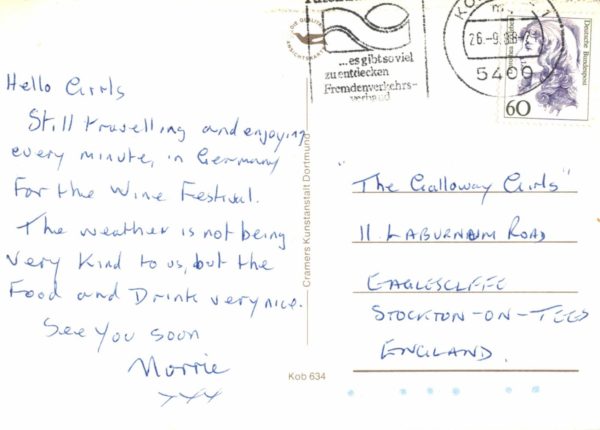 Hello Girls
Still travelling and enjoying
every minute, in Germany
For the Wine Festival.
The weather is not being
very Kind to us, but the
Food and Drink very nice.
See You soon
Morrie
xxx
DIE QUALITÄTS
ANSICHTSKARTE
Cramers Kunstanstalt Dortmund
Kob 634
...es gibt so viel
zu entdecken
Fremdenverkehrs-
verband
KO 1
26.-9.88-21
5400
Deutsche Bundespost
60
"The Galloway Girls"
11. LABURNUM ROAD
EAGLESCLIFFE
STOCKTON-ON-TEES
ENGLAND.